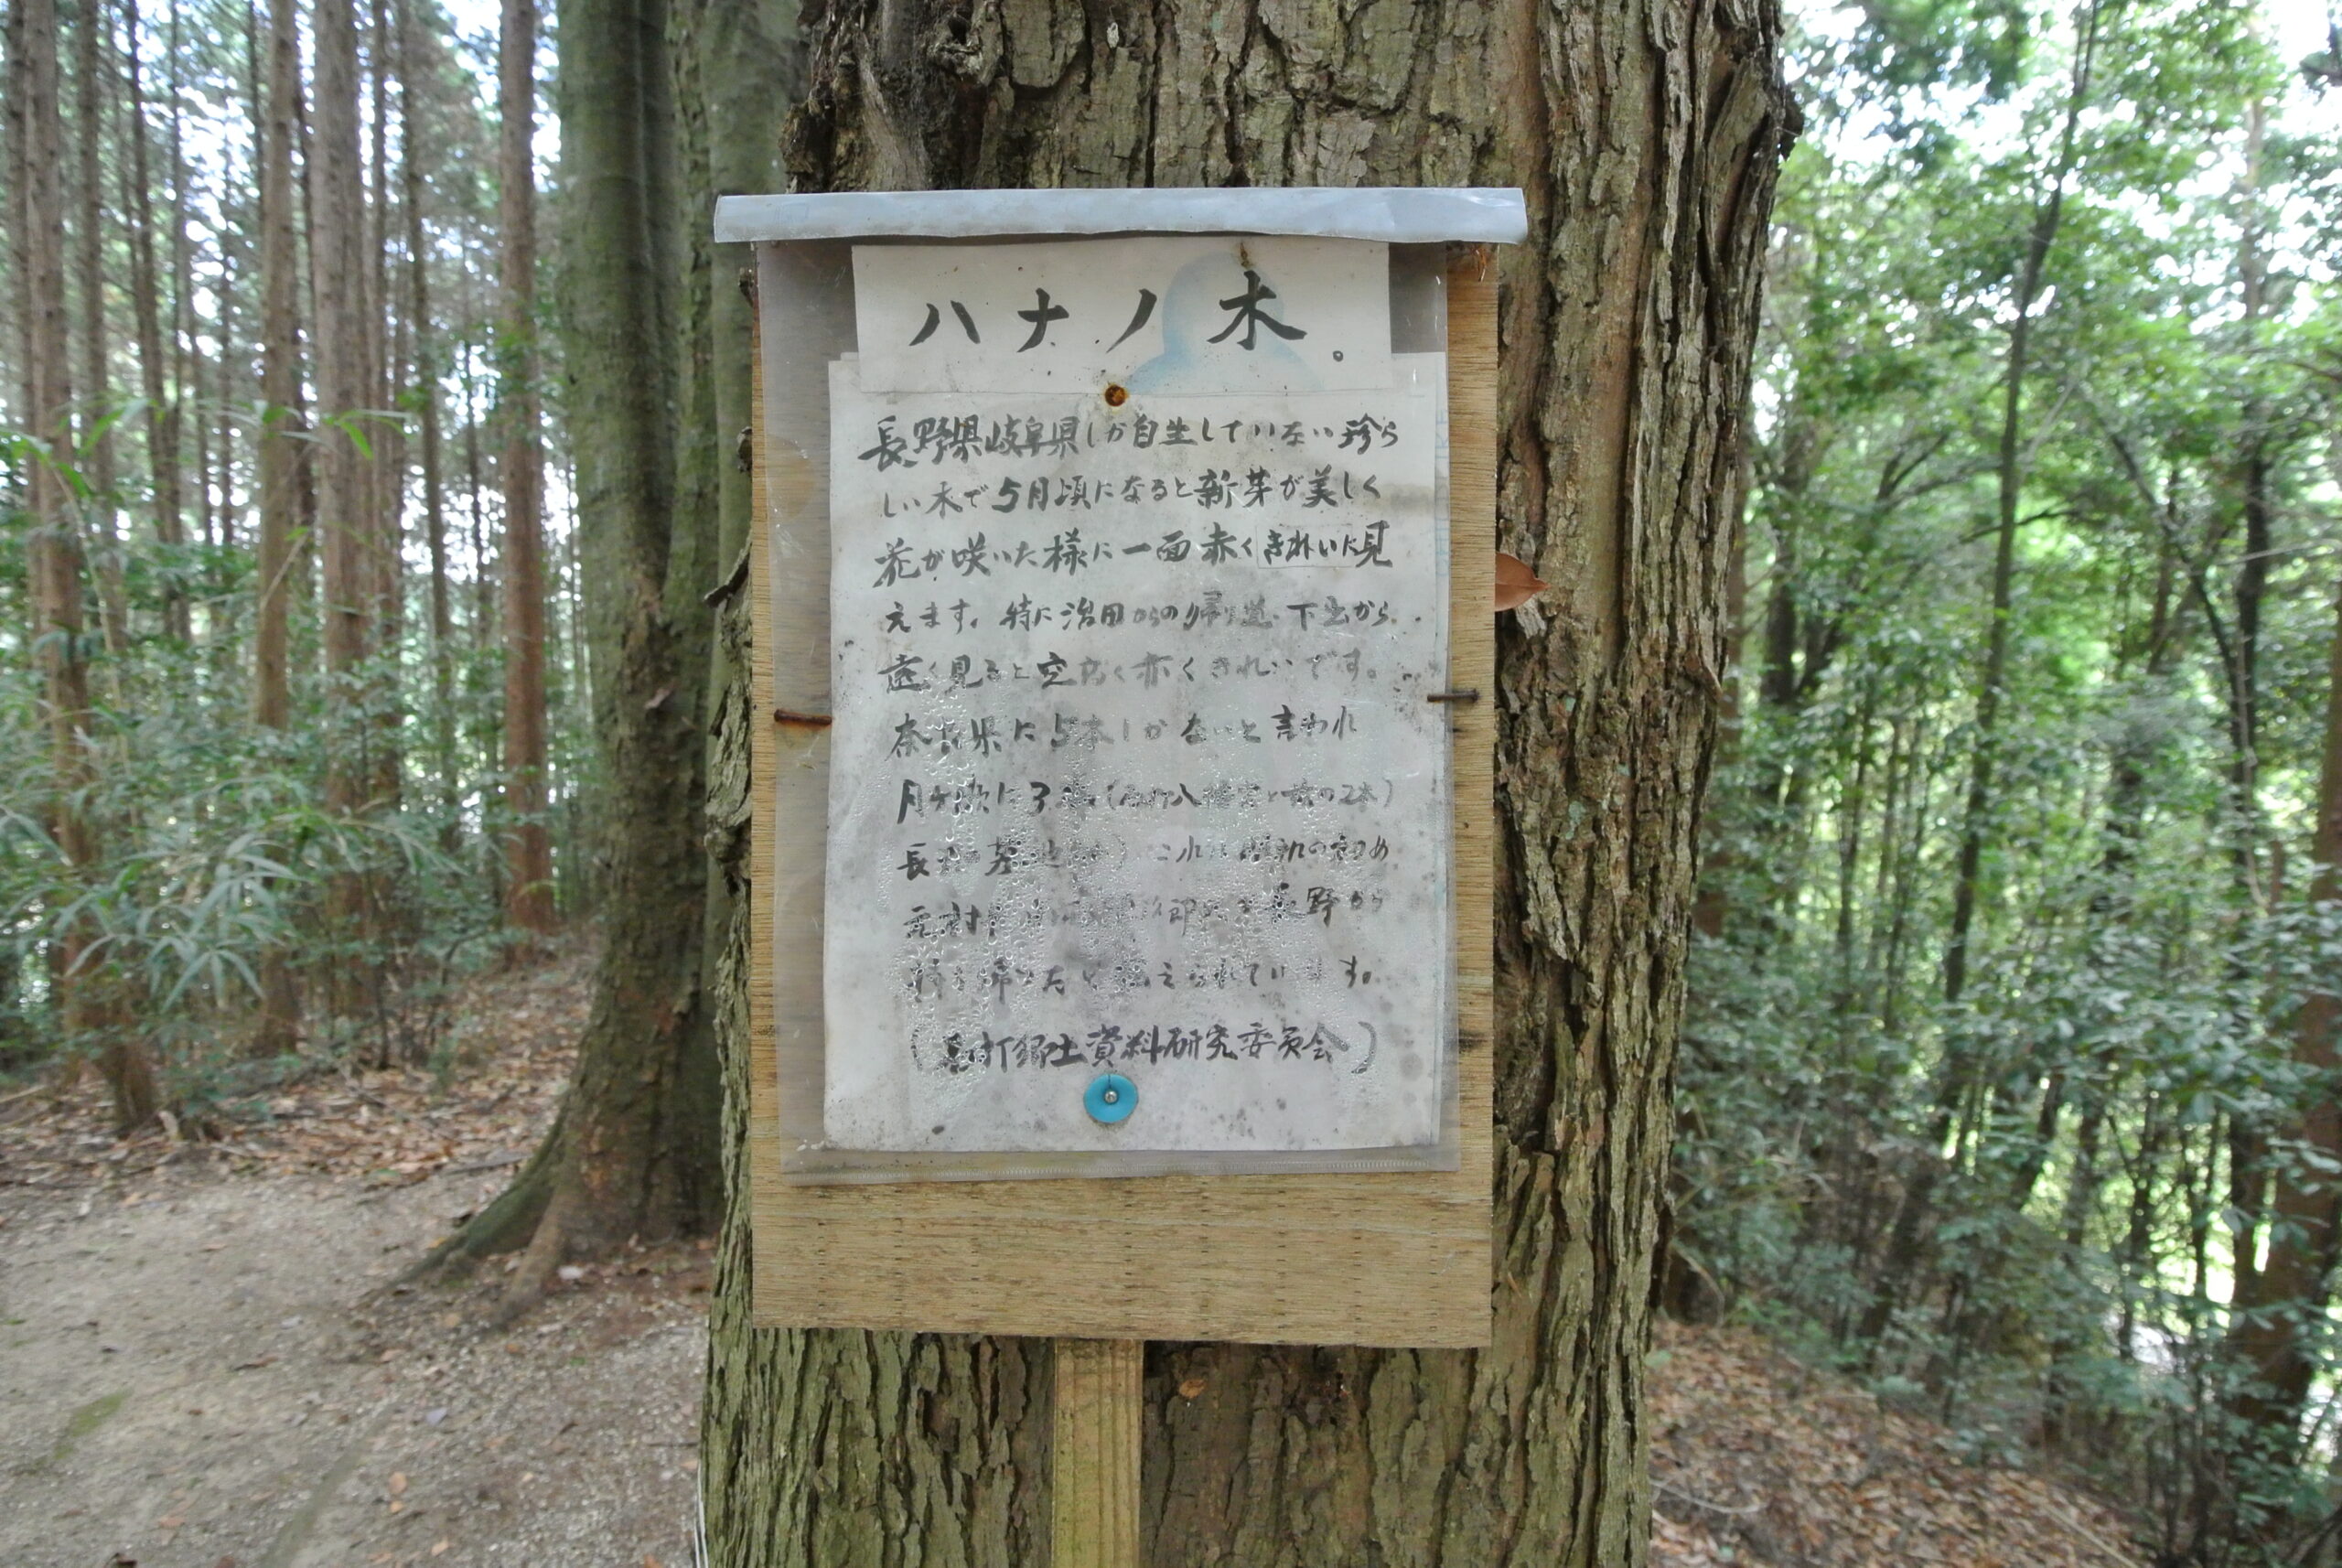 ハナノ木。
長野県岐阜県しか自生していない珍ら
しい木で5月頃になると新芽が美しく
花が咲いた様に一面赤くきれいに見
えます。特に治田からの帰り道下出から
遠く見ると空高く赤くきれいです。
奈良県に5本しかないと言われ
月ヶ瀬に3本(八幡宮と前の2本)
長 墓地 これは明 の初め
元村 郎 長野から
持ち帰ったと伝えられています。
(長打郷土資料研究委員会)